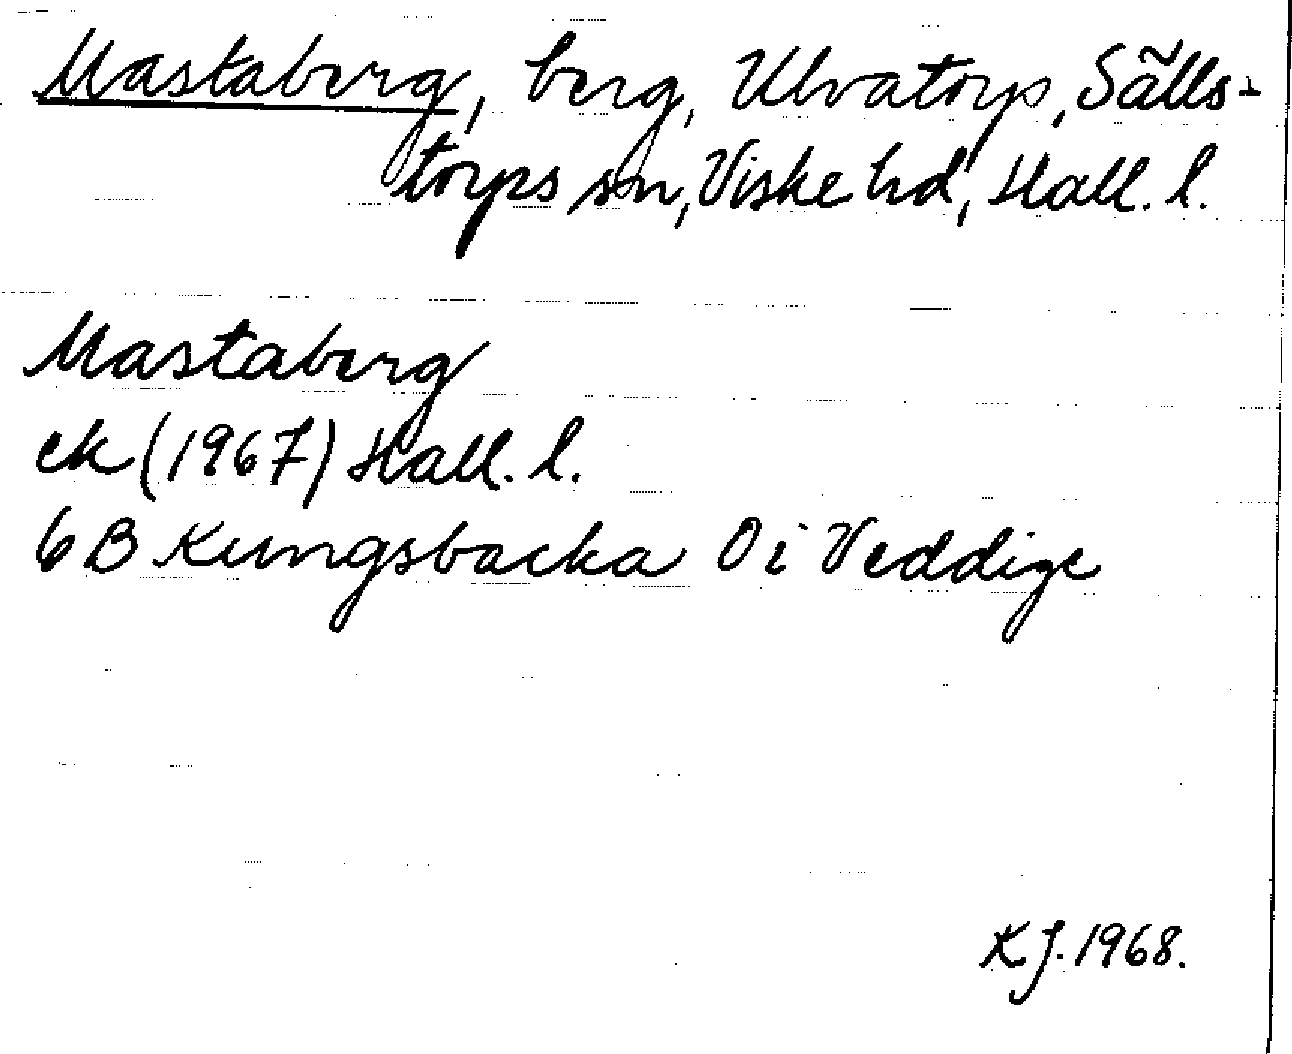 Mastaberg, berg, Ulvatorp, Sälls-
torps sn, Viske hd, Hall. l.
Mastaberg
ek (1967) Hall. l.
6B Kungsbacka Ö i Veddige
K J. 1968.